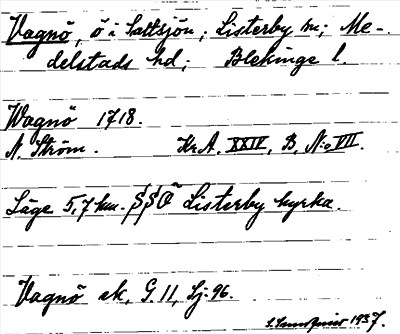 Vagnö, ö i saltsjön; Listerby sn; Me-
delstads hd; Blekinge l.
Wagnö 1718.
N. Ström. Kr.A. XXIV, B, No VII.
Läge 5,7 km. SSO Listerby kyrka.
Vagnö ek. G. 11, Lj. 96.
1937.